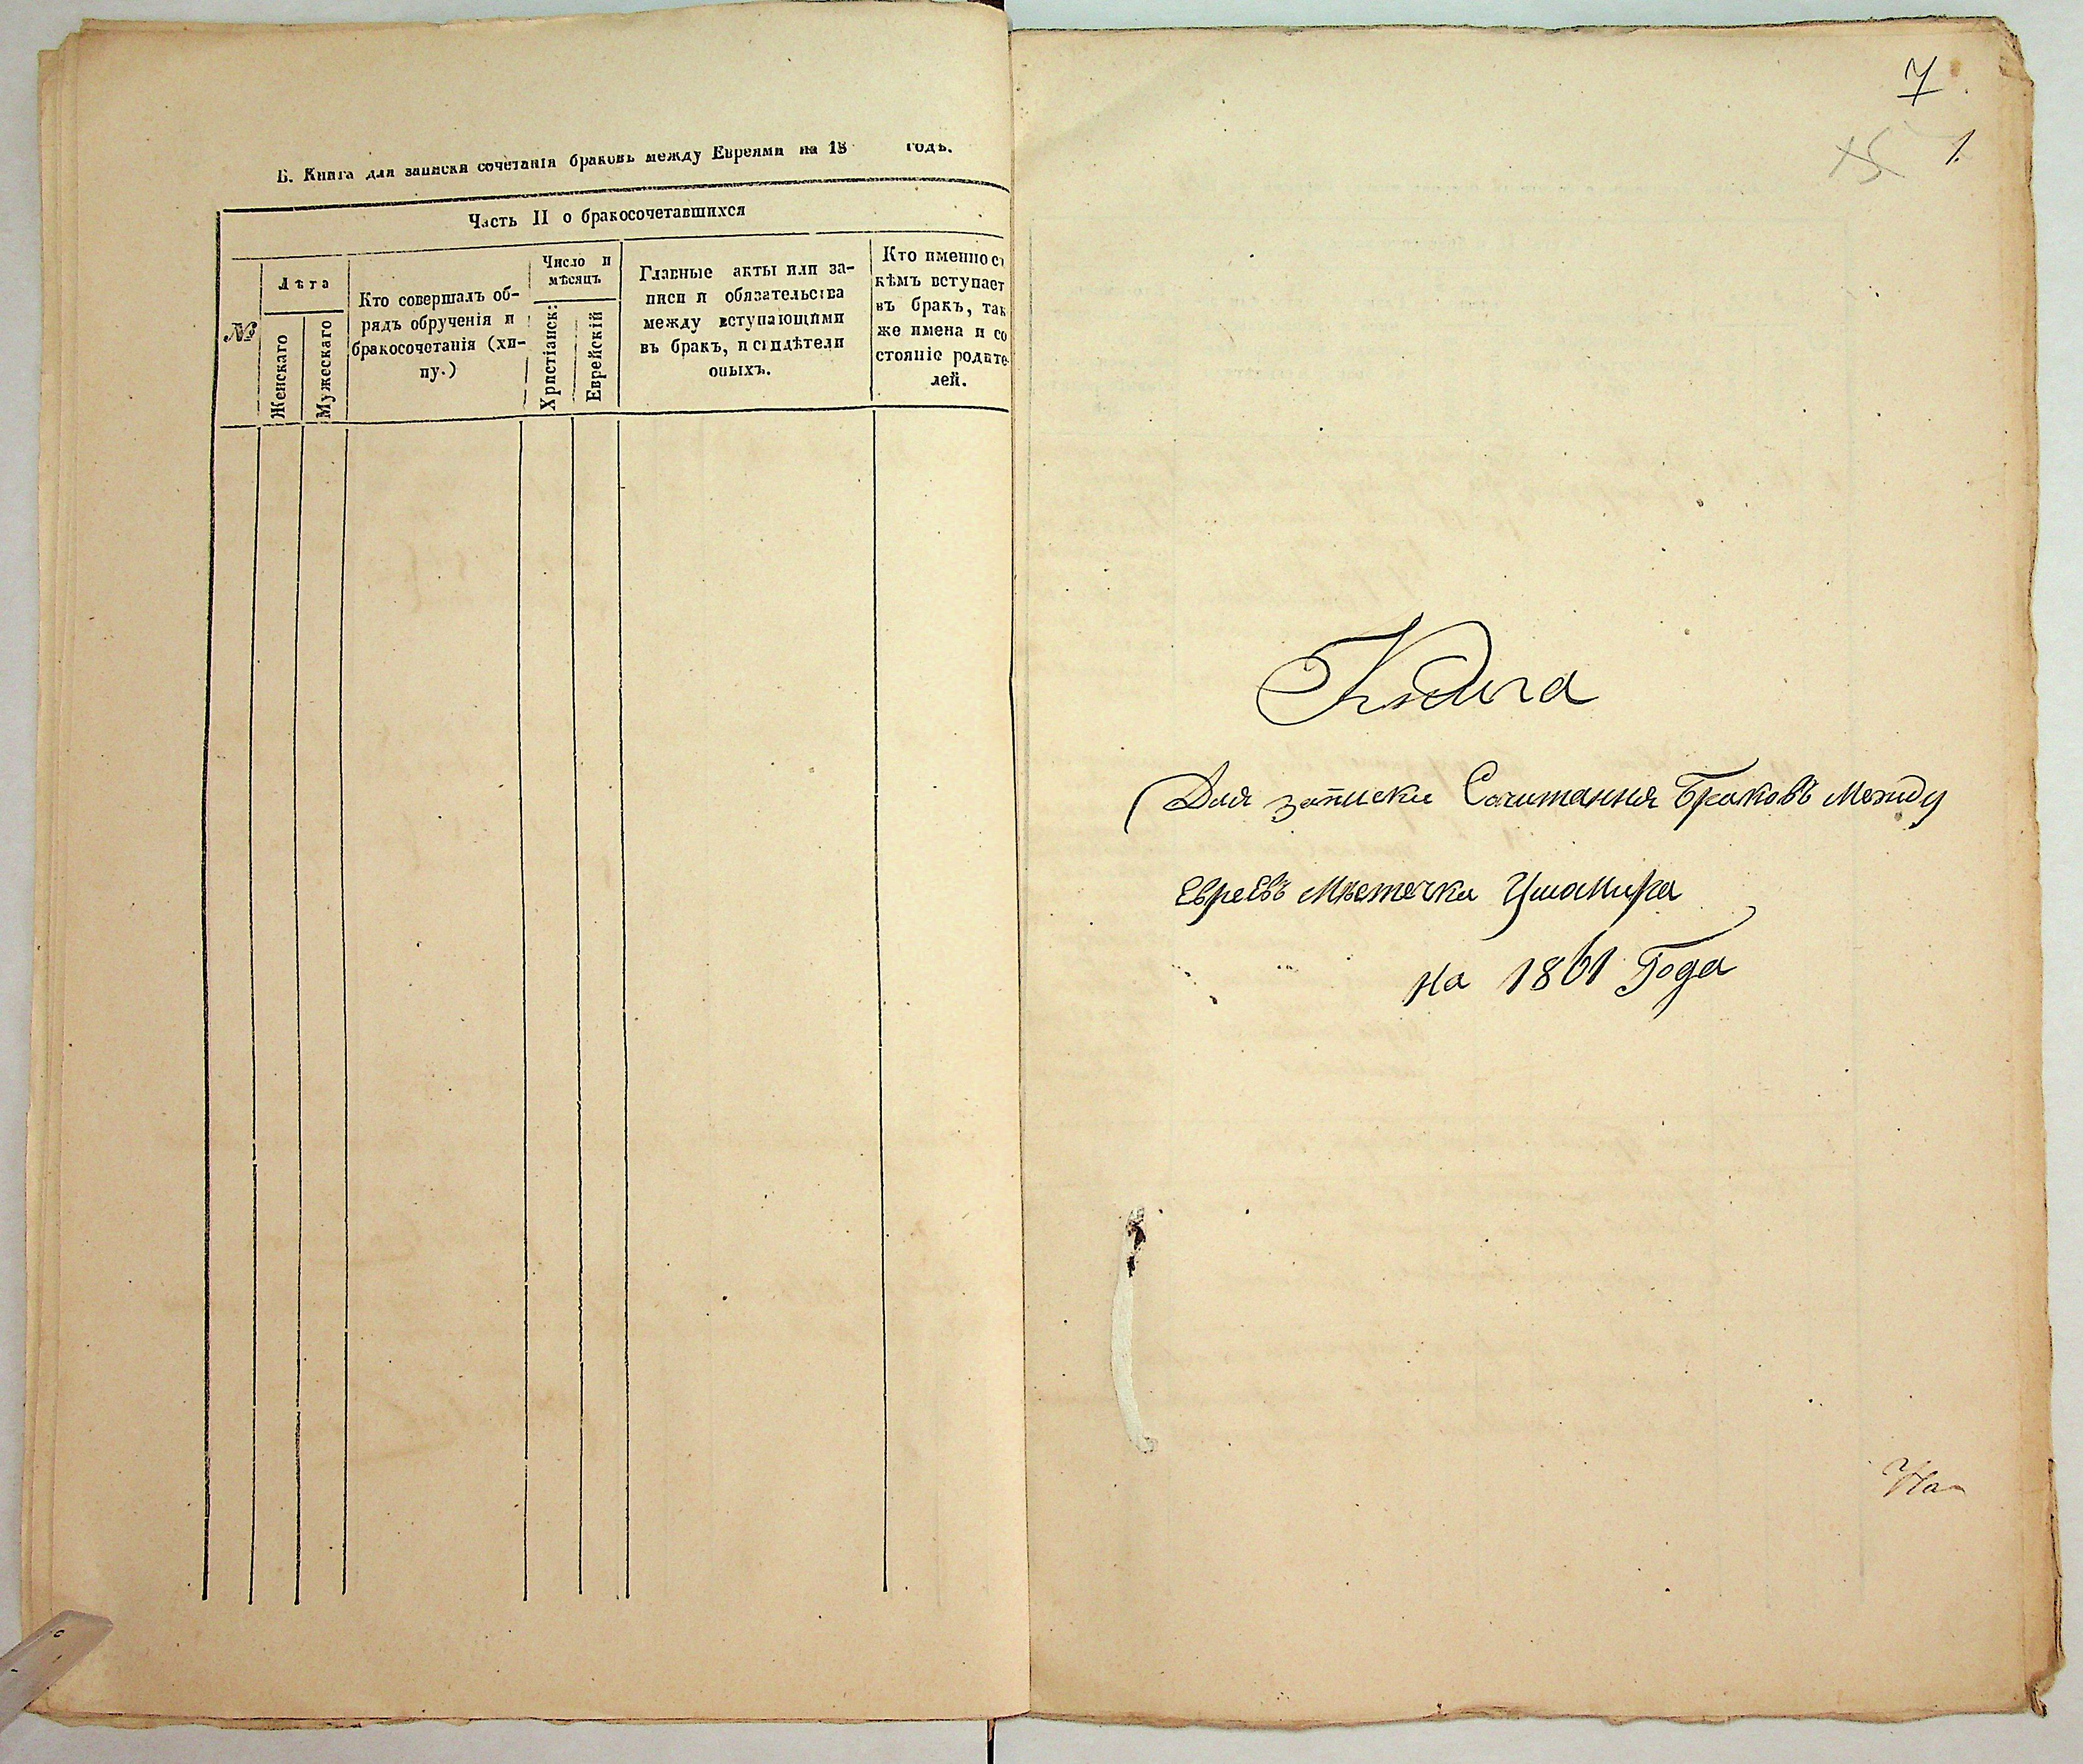 Б. Книга для записки сочетанія браковъ между Евреями на 18 годъ.
Часть II о бракосочетавшихся
№
Лѣта
Женскаго
Мужескаго
Кто совершалъ об-
рядъ обрученія и
бракосочетанія (хи-
пу.)
Число и
мѣсяцъ
Христіанск:
Еврейскій
Главные акты или за-
писи и обязательства
между вступающими
въ бракъ, и свидѣтели
оныхъ.
Кто именно съ
кѣмъ вступает
въ бракъ, так
же имена и со
стояніе родите
лей.
7
15
1.
Книга
Для записки Сочитанния Браковъ Между
Евреевъ Мѣстечка Ушамира
на 1861 Года
На